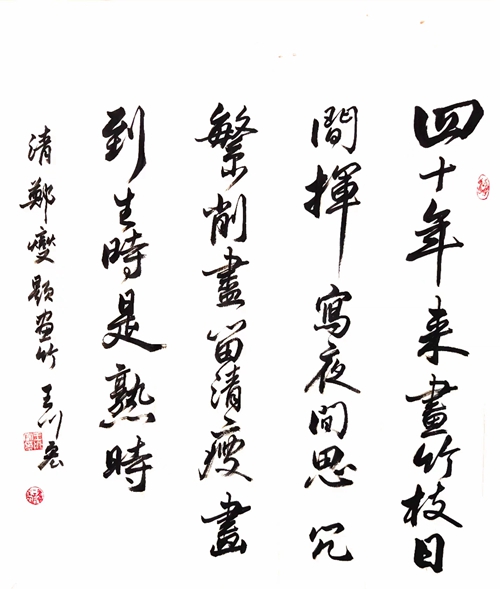 四十年来畫竹枝日
間揮寫夜間思冗
繁削盡留清瘦畫
到生時是熟時
清鄭燮題畫竹 王川